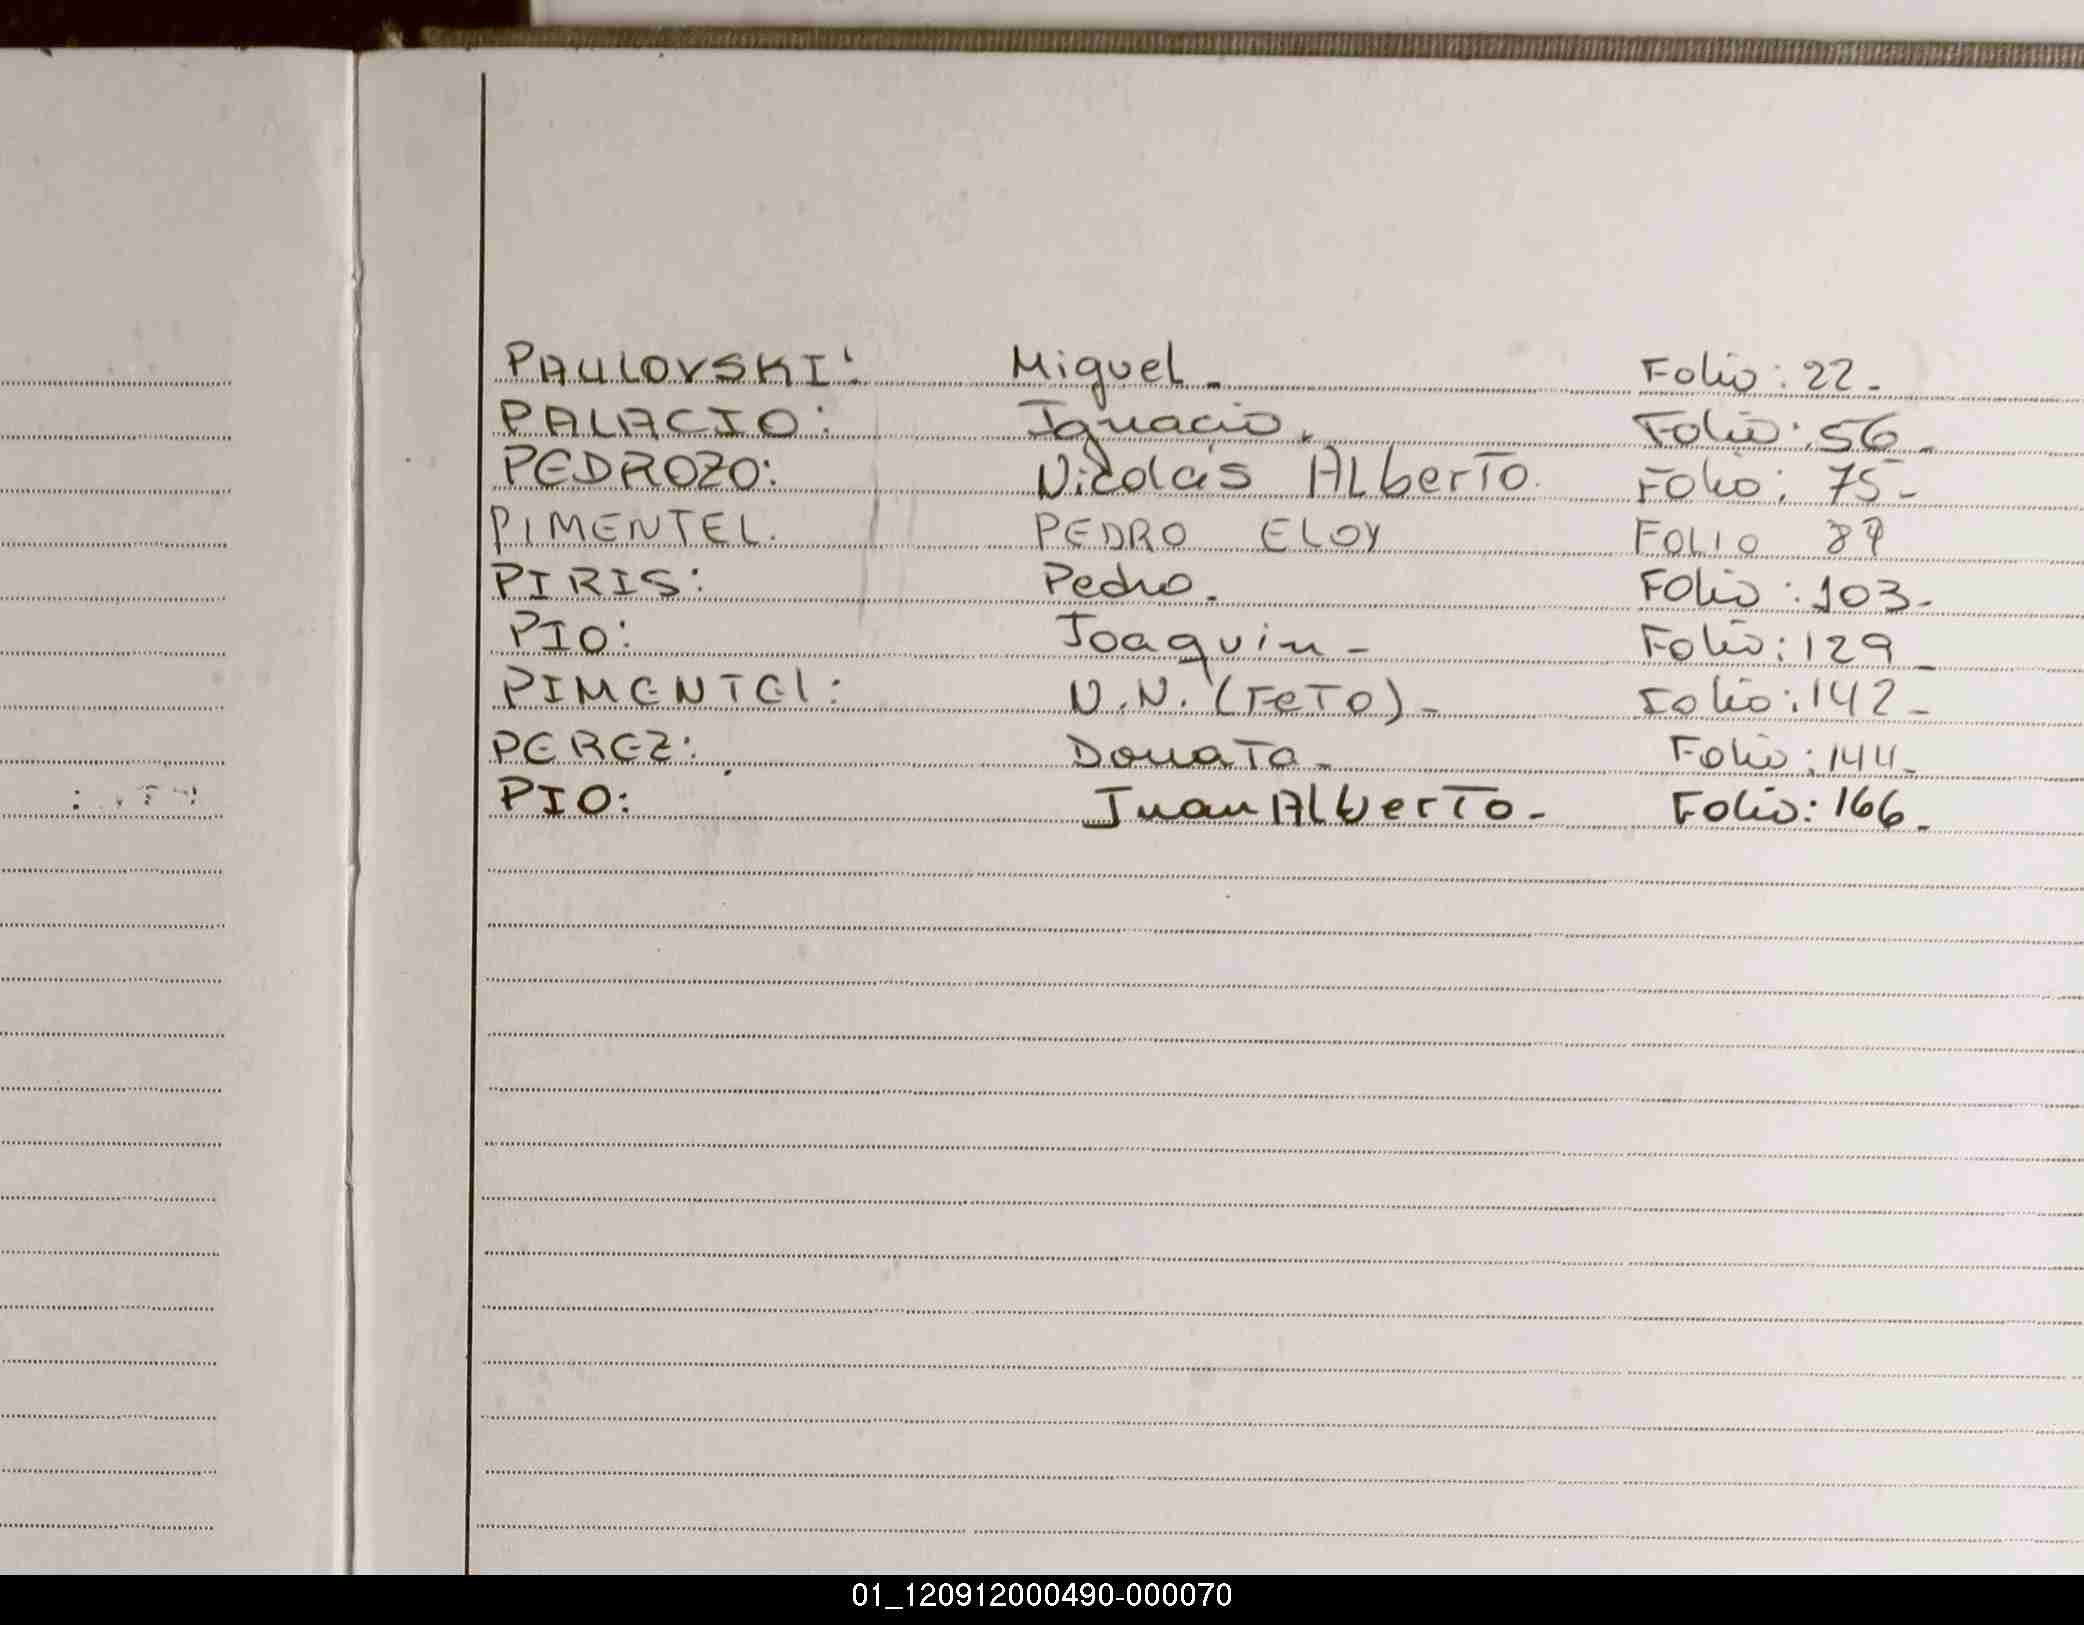 PAULOVSKI: Miguel. Folio: 22-
PALACIO: Ignacio. Folio: 56-
PEDROZO: Nicolás Alberto. Folio: 75-
PIMENTEL. PEDRO ELOY FOLIO 89
PIRIS: Pedro. Folio: 103-
PIO: Joaquin- Folio: 129-
PIMENTEl: N.N. (FeTo)- Folio: 142-
PEREZ: Donata- Folio: 144-
PIO: Juan Alberto- Folio: 166-
01_120912000490-000070